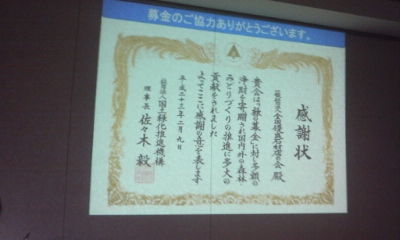 募金のご協力ありがとうございます。
感謝状
一般社団法人全国優良石材店の会 殿
貴会は、緑の募金に対し多額の
浄財を寄附され国内外の森林・
みどりづくりの推進に多大の
貢献をされました
よってここに感謝の意を表します
平成二十三年二月九日
社団法人国土緑化推進機構
理事長 佐々木 毅